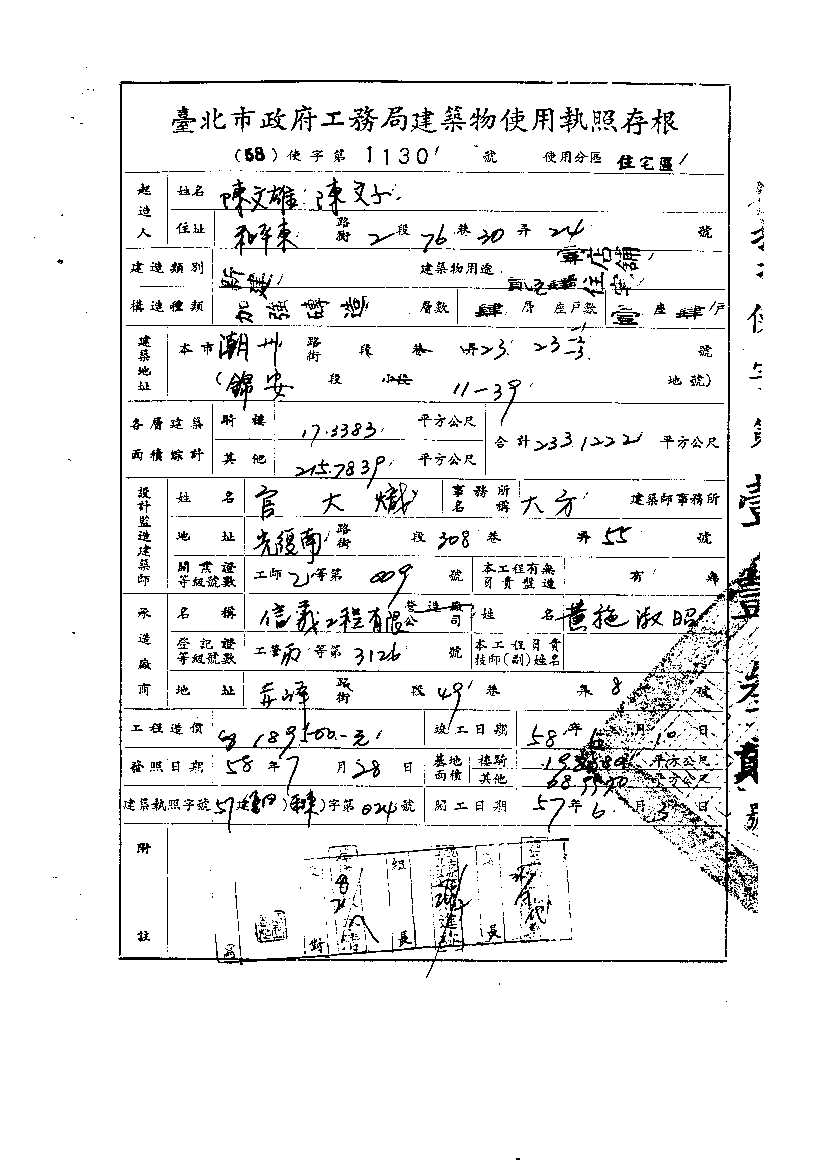 臺北市政府工務局建築物使用執照存根
(58)使字第 1130 號 使用分區 住宅區
起造人 姓名 陳文雄
住址 和平東 路街 2 段 76 巷 30 弄 24 號
建造類別 新建 建築物用途 店舖 住宅
構造種類 加強磚造 層數 肆 層 座戶數 壹 座 肆 戶
建築地址 本市 潮州 路街 段 巷 弄 23 23-2 -3 號
(錦安 段 小段 11-39 地號)
各層建築面積綜計 騎樓 17.3383 平方公尺 合計 233.1222 平方公尺
其他 215.7839 平方公尺
設計監造建築師 姓名 官大熾 事務所名稱 大方 建築師事務所
地址 光復南 路街 段 308 巷 弄 55 號
開業證等級號數 工師 乙 等第 009 號 本工程有無負責監造 有 無
承造廠商 名稱 信義工程有限 營造廠公司 姓名 黃施淑昭
登記證等級號數 工營 丙 等第 3126 號 本工程負責技師(副)姓名
地址 赤峰 路街 段 49 巷 弄 8 號
工程造價 189500-元 竣工日期 58 年 6 月 10 日
發照日期 58 年 7 月 28 日 基地面積 樓騎 平方公尺
其他 平方公尺
建築執照字號 57 建( )( )字第 024 號 開工日期 57 年 6 月 3 日
附註
組長